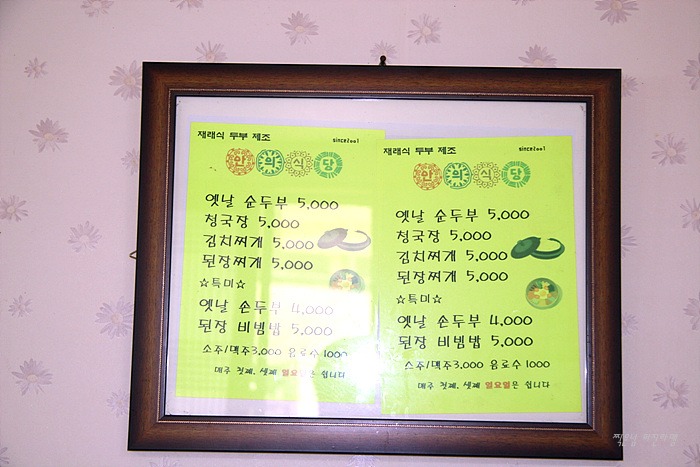 재래식 두부 제조 since2001
안의식당
옛날 순두부 5,000
청국장 5,000
김치찌개 5,000
된장찌개 5,000
☆특미☆
옛날 손두부 4,000
된장 비빔밥 5,000
소주/맥주3,000 음료수 1000
매주 첫째, 셋째 일요 은 쉽니다
재래식 두부 제조 since2001
안의식당
옛날 순두부 5,000
청국장 5,000
김치찌개 5,000
된장찌개 5,000
☆특미☆
옛날 손두부 4,000
된장 비빔밥 5,000
소주/맥주3,000 음료수 1000
매주 첫째, 셋째 일요일은 쉽니다